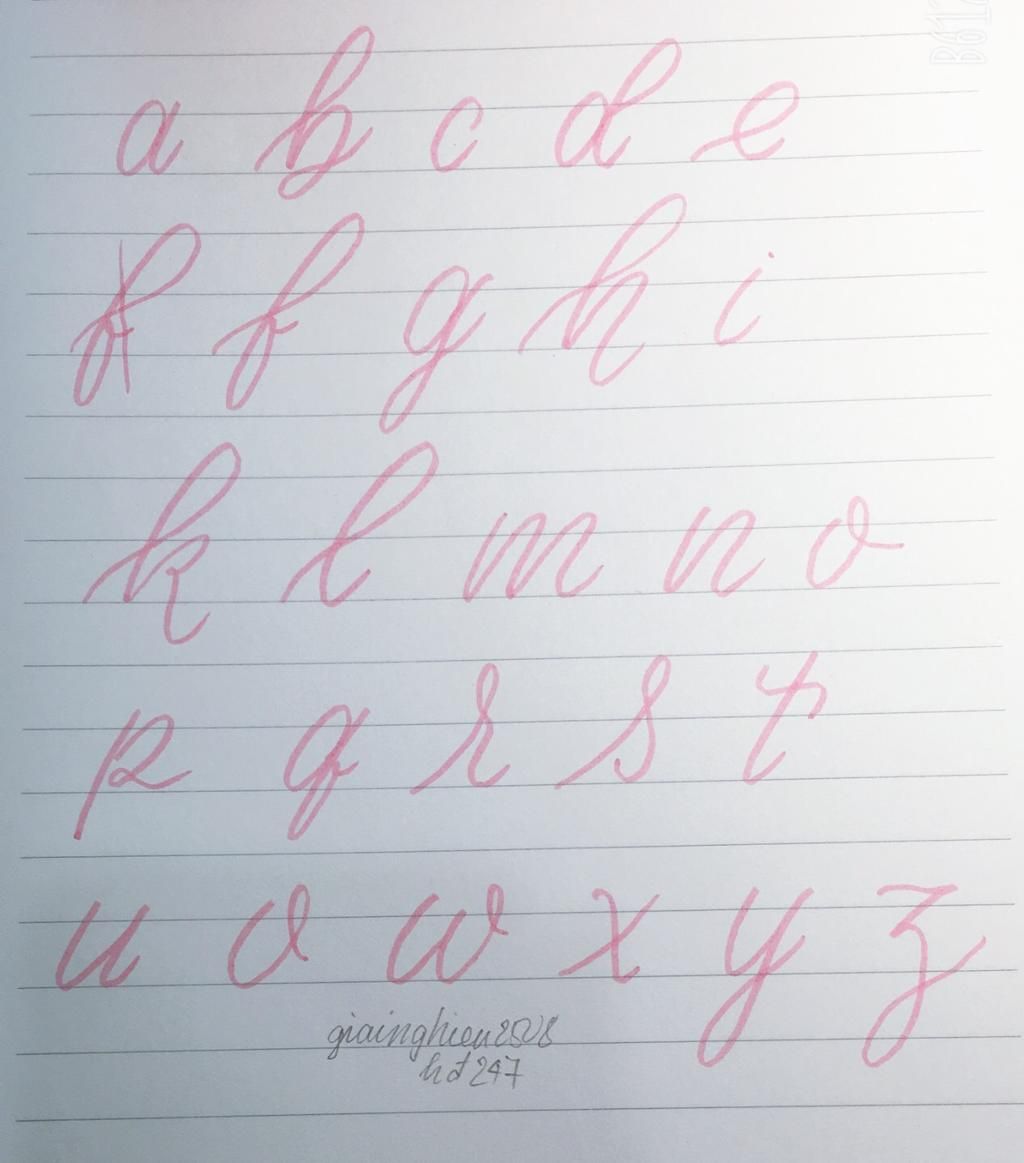 a b c d e
f g h i
k l m n o
p q r s t
u v w x y z
giainghien2508
hđ247
B612